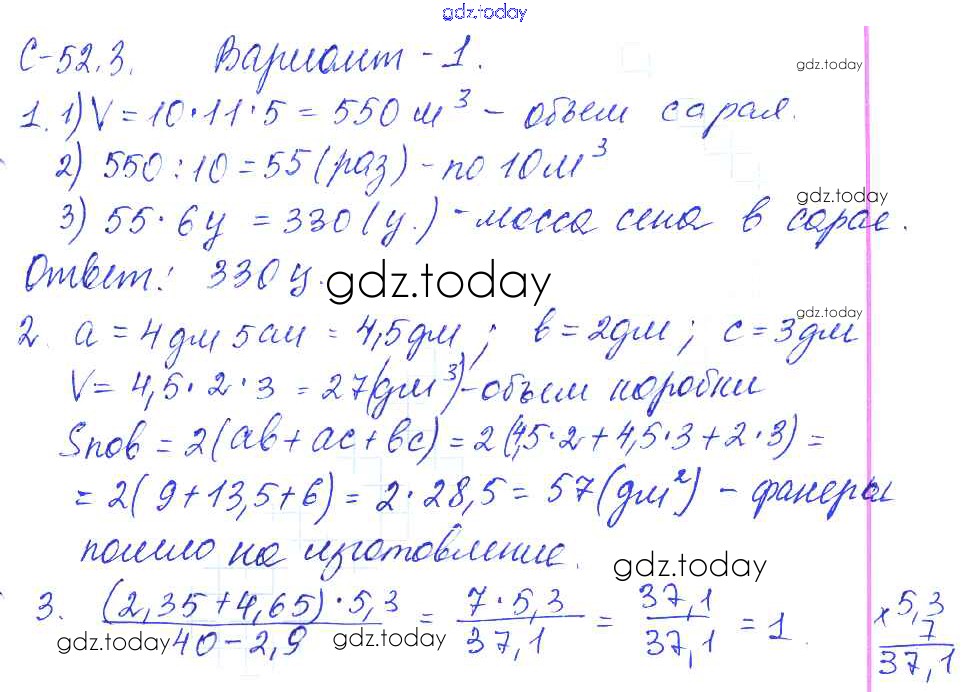 gdz.today
С-52.3. Вариант-1.
gdz.today
1. 1) V = 10·11·5 = 550 м³ - объем сарая.
2) 550 : 10 = 55 (раз) - по 10 м³
gdz.today
3) 55 · 6ц = 330 (ц.) - масса сена в сарае.
Ответ: 330 ц. gdz.today
gdz.today
2. a = 4 дм 5 см = 4,5 дм; в = 2 дм; с = 3 дм
V = 4,5 · 2 · 3 = 27 (дм³) - объем коробки
Sпов = 2(ав + ас + вс) = 2(4,5·2 + 4,5·3 + 2·3) =
= 2(9 + 13,5 + 6) = 2 · 28,5 = 57 (дм²) - фанеры
пошло на изготовление.
gdz.today
3. (2,35 + 4,65) · 5,3 / 40 - 2,9 = 7 · 5,3 / 37,1 = 37,1 / 37,1 = 1.
× 5,3
7
37,1
gdz.today gdz.today